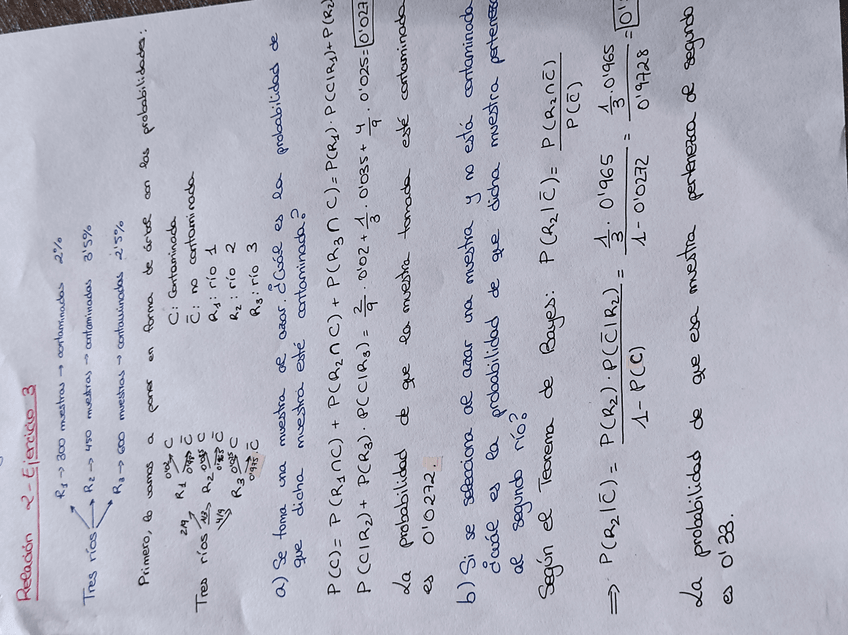 Relación 2 - Ejercicio 3
R₁ → 300 muestras → contaminadas 2%
Tres ríos → R₂ → 450 muestras → contaminadas 3'5%
R₃ → 600 muestras → contaminadas 2'5%
Primero, lo vamos a poner en forma de árbol con las probabilidades:
2/9 R₁ 0'02 C
0'98 C̄
Tres ríos 1/3 R₂ 0'035 C
0'965 C̄
4/9 R₃ 0'025 C
0'975 C̄
C: Contaminada
C̄: no contaminada
R₁: río 1
R₂: río 2
R₃: río 3
a) Se toma una muestra al azar. ¿Cuál es la probabilidad de
que dicha muestra esté contaminada?
P(C) = P(R₁∩C) + P(R₂∩C) + P(R₃∩C) = P(R₁)·P(C|R₁) + P(R₂)
P(C|R₂) + P(R₃)·P(C|R₃) = 2/9 · 0'02 + 1/3 · 0'035 + 4/9 · 0'025 = 0'027
La probabilidad de que la muestra tomada esté contaminada
es 0'0272.
b) Si se selecciona al azar una muestra y no está contaminada
¿cuál es la probabilidad de que dicha muestra pertenezca
al segundo río?
Según el Teorema de Bayes: P(R₂|C̄) = P(R₂∩C̄) / P(C̄)
⇒ P(R₂|C̄) = P(R₂)·P(C̄|R₂) / 1 - P(C) = 1/3 · 0'965 / 1 - 0'0272 = 1/3 · 0'965 / 0'9728 = 0'
La probabilidad de que esa muestra pertenezca al segundo
es 0'33.